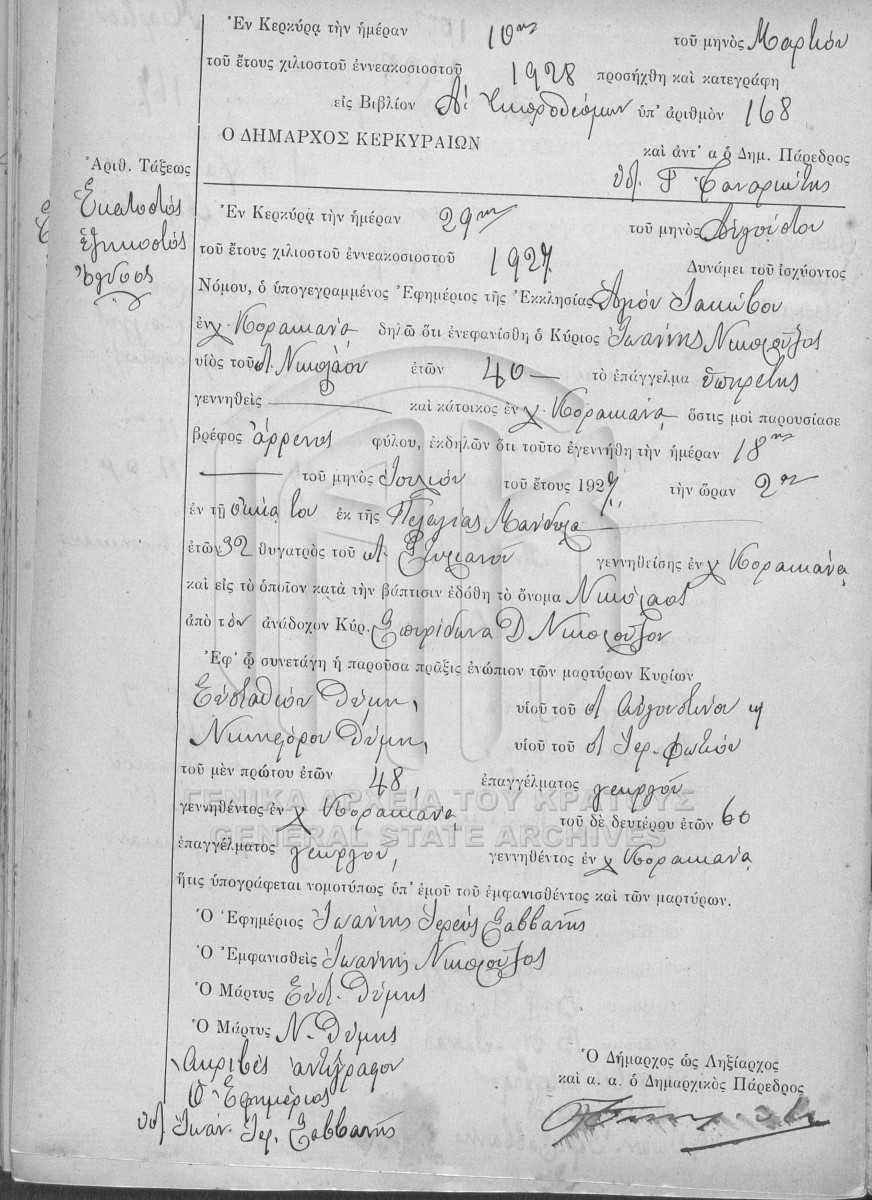 Ἐν Κερκύρᾳ τὴν ἡμέραν 10ην τοῦ μηνὸς Μαρτίου
τοῦ ἔτους χιλιοστοῦ ἐννεακοσιοστοῦ 1928 προσήχθη καὶ κατεγράφη
εἰς Βιβλίον Αʹ Ἐκπροθέσμων ὑπ' ἀριθμὸν 168
Ο ΔΗΜΑΡΧΟΣ ΚΕΡΚΥΡΑΙΩΝ
καὶ ἀντ' α ὁ Δημ. Πάρεδρος
Ἀριθ. Τάξεως
Ἑκατοστός
Ἑξηκοστός
Ὄγδοος
Ἐν Κερκύρᾳ τὴν ἡμέραν 29ην τοῦ μηνὸς Αὐγούστου
τοῦ ἔτους χιλιοστοῦ ἐννεακοσιοστοῦ 1927 Δυνάμει τοῦ ἰσχύοντος
Νόμου, ὁ ὑπογεγραμμένος Ἐφημέριος τῆς Ἐκκλησίας Ἁγίου Ἰακώβου
ἐν χ. Κορακιάνα δηλῶ ὅτι ἐνεφανίσθη ὁ Κύριος Ἰωάννης Νικοροῦζος
υἱὸς τοῦ Νικολάου ἐτῶν 40 τὸ ἐπάγγελμα ὑπηρέτης
γεννηθεὶς καὶ κάτοικος ἐν χ. Κορακιάνα ὅστις μοὶ παρουσίασε
βρέφος ἄρρενος φύλου, ἐκδηλῶν ὅτι τοῦτο ἐγεννήθη τὴν ἡμέραν 18ην
τοῦ μηνὸς Ἰουλίου τοῦ ἔτους 1927, τὴν ὥραν 2αν
ἐν τῇ οἰκίᾳ του ἐκ τῆς Πελαγίας Μάνδυλα
ἐτῶν 32 θυγατρὸς τοῦ Στυλιανοῦ γεννηθείσης ἐν χ Κορακιάνα
καὶ εἰς τὸ ὁποῖον κατὰ τὴν βάπτισιν ἐδόθη τὸ ὄνομα Νικόλαος
ἀπὸ τὸν ἀνάδοχον Κύρ. Σπυρίδωνα Δ Νικοροῦζον
Ἐφ' ᾧ συνετάγη ἡ παροῦσα πρᾶξις ἐνώπιον τῶν μαρτύρων Κυρίων
Εὐσταθίου Θύμη, υἱοῦ τοῦ Αὐγουστίνου
Νικηφόρου Θύμη, υἱοῦ τοῦ Ἱερ. Φωτίου
τοῦ μὲν πρώτου ἐτῶν 48, ἐπαγγέλματος γεωργοῦ
γεννηθέντος ἐν χ Κορακιάνα τοῦ δὲ δευτέρου ἐτῶν 60
ἐπαγγέλματος γεωργοῦ, γεννηθέντος ἐν χ Κορακιάνα
ἥτις ὑπογράφεται νομοτύπως ὑπ' ἐμοῦ τοῦ ἐμφανισθέντος καὶ τῶν μαρτύρων.
Ὁ Ἐφημέριος Ἰωάννης Ἱερεὺς Σαββανῆς
Ὁ Ἐμφανισθεὶς Ἰωάννης Νικοροῦζος
Ὁ Μάρτυς Εὐστ. Θύμης
Ὁ Μάρτυς Ν. Θύμης
Ἀκριβὲς ἀντίγραφον
Ὁ Ἐφημέριος
Ἰωάν. Ἱερ. Σαββανῆς
Ὁ Δήμαρχος ὡς Ληξίαρχος
καὶ α. α. ὁ Δημαρχικὸς Πάρεδρος
ΓΕΝΙΚΑ ΑΡΧΕΙΑ ΤΟΥ ΚΡΑΤΟΥΣ
GENERAL STATE ARCHIVES